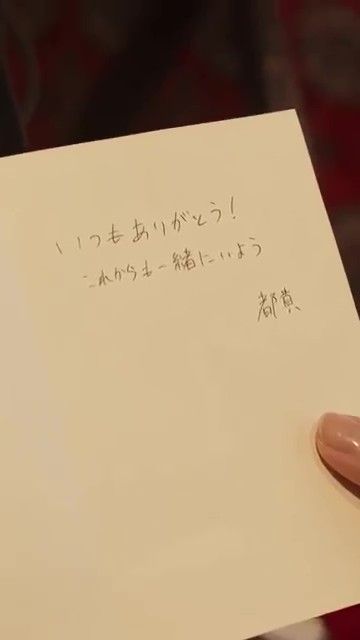 いつもありがとう!
これからも一緒にいよう
都貴